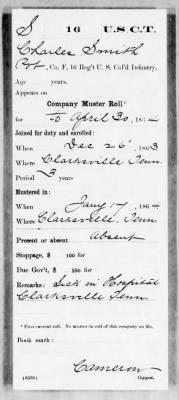 S 16 U.S.C.T.
Charles Smith
Pvt, Co. F, 16 Reg't U. S. Col'd Infantry.
Age years.
Appears on
Company Muster Roll*
for to April 30, 1864
Joined for duty and enrolled:
When Dec 26, 1863
Where Clarksville Tenn
Period 3 years
Mustered in:
When Jany 17, 1864
Where Clarksville, Tenn
Present or absent Absent
Stoppage, $ 100 for
Due Gov't, $ 100 for
Remarks: Sick in Hospital
Clarksville Tenn.
* First current roll. No muster-in roll of this company on file.
Book mark:
Cameron
Copyist.